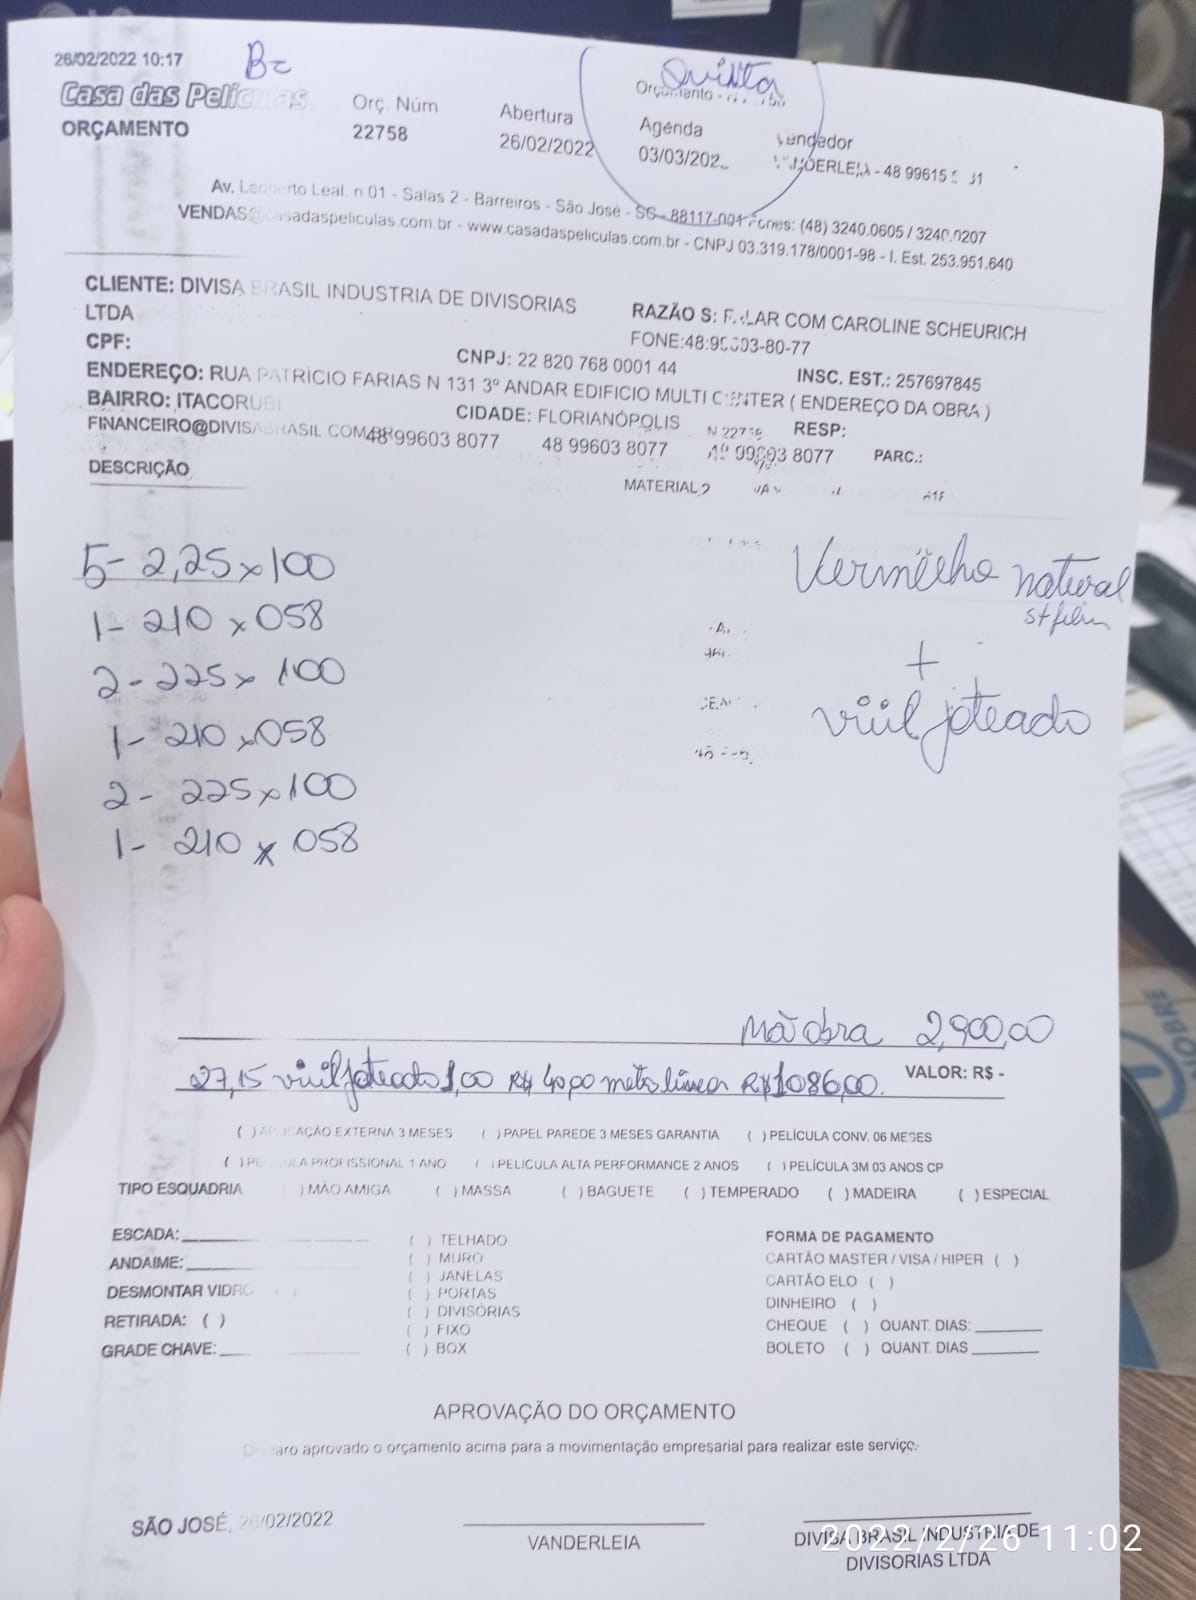 26/02/2022 10:17
Casa das Películas
ORÇAMENTO
Orç. Núm
22758
Abertura
26/02/2022
Quinta
Orçamento
Agenda
03/03/202
Vendedor
48 99615
Av. Leoberto Leal, n 01 - Salas 2 - Barreiros - São José - SC - 88117-001 Fones: (48) 3240.0605 / 3240.0207
VENDAS@casadaspeliculas.com.br - www.casadaspeliculas.com.br - CNPJ 03.319.178/0001-98 - I. Est. 253.951.640
CLIENTE: DIVISA BRASIL INDUSTRIA DE DIVISORIAS
LTDA
RAZÃO S: FALAR COM CAROLINE SCHEURICH
CPF:
FONE:48:99603-80-77
CNPJ: 22 820 768 0001 44
INSC. EST.: 257697845
ENDEREÇO: RUA PATRÍCIO FARIAS N 131 3º ANDAR EDIFICIO MULTI CENTER ( ENDEREÇO DA OBRA )
BAIRRO: ITACORUBI
CIDADE: FLORIANÓPOLIS
N 22758
RESP:
FINANCEIRO@DIVISABRASIL.COM.BR
48 99603 8077
48 99603 8077
48 99603 8077
PARC.:
DESCRIÇÃO
MATERIAL
5- 2,25 x 100
1- 210 x 058
2- 225 x 100
1- 210 x 058
2- 225 x 100
1- 210 x 058
Vermelho natural
st film
+
viuil joteado
Mão obra 2,900,00
27,15 viuil joteado 1,00 R$ 40,00 metro linear R$ 1086,00.
VALOR: R$ -
( ) APLICAÇÃO EXTERNA 3 MESES ( ) PAPEL PAREDE 3 MESES GARANTIA ( ) PELÍCULA CONV. 06 MESES
( ) PELÍCULA PROFISSIONAL 1 ANO ( ) PELICULA ALTA PERFORMANCE 2 ANOS ( ) PELÍCULA 3M 03 ANOS CP
TIPO ESQUADRIA ( ) MÃO AMIGA ( ) MASSA ( ) BAGUETE ( ) TEMPERADO ( ) MADEIRA ( ) ESPECIAL
ESCADA:
ANDAIME:
DESMONTAR VIDRO ( )
RETIRADA: ( )
GRADE CHAVE:
( ) TELHADO
( ) MURO
( ) JANELAS
( ) PORTAS
( ) DIVISÓRIAS
( ) FIXO
( ) BOX
FORMA DE PAGAMENTO
CARTÃO MASTER / VISA / HIPER ( )
CARTÃO ELO ( )
DINHEIRO ( )
CHEQUE ( ) QUANT. DIAS:
BOLETO ( ) QUANT. DIAS
APROVAÇÃO DO ORÇAMENTO
Declaro aprovado o orçamento acima para a movimentação empresarial para realizar este serviço.
SÃO JOSÉ, 26/02/2022
VANDERLEIA
DIVISA BRASIL INDUSTRIA DE
DIVISORIAS LTDA
2022/2/26 11:02